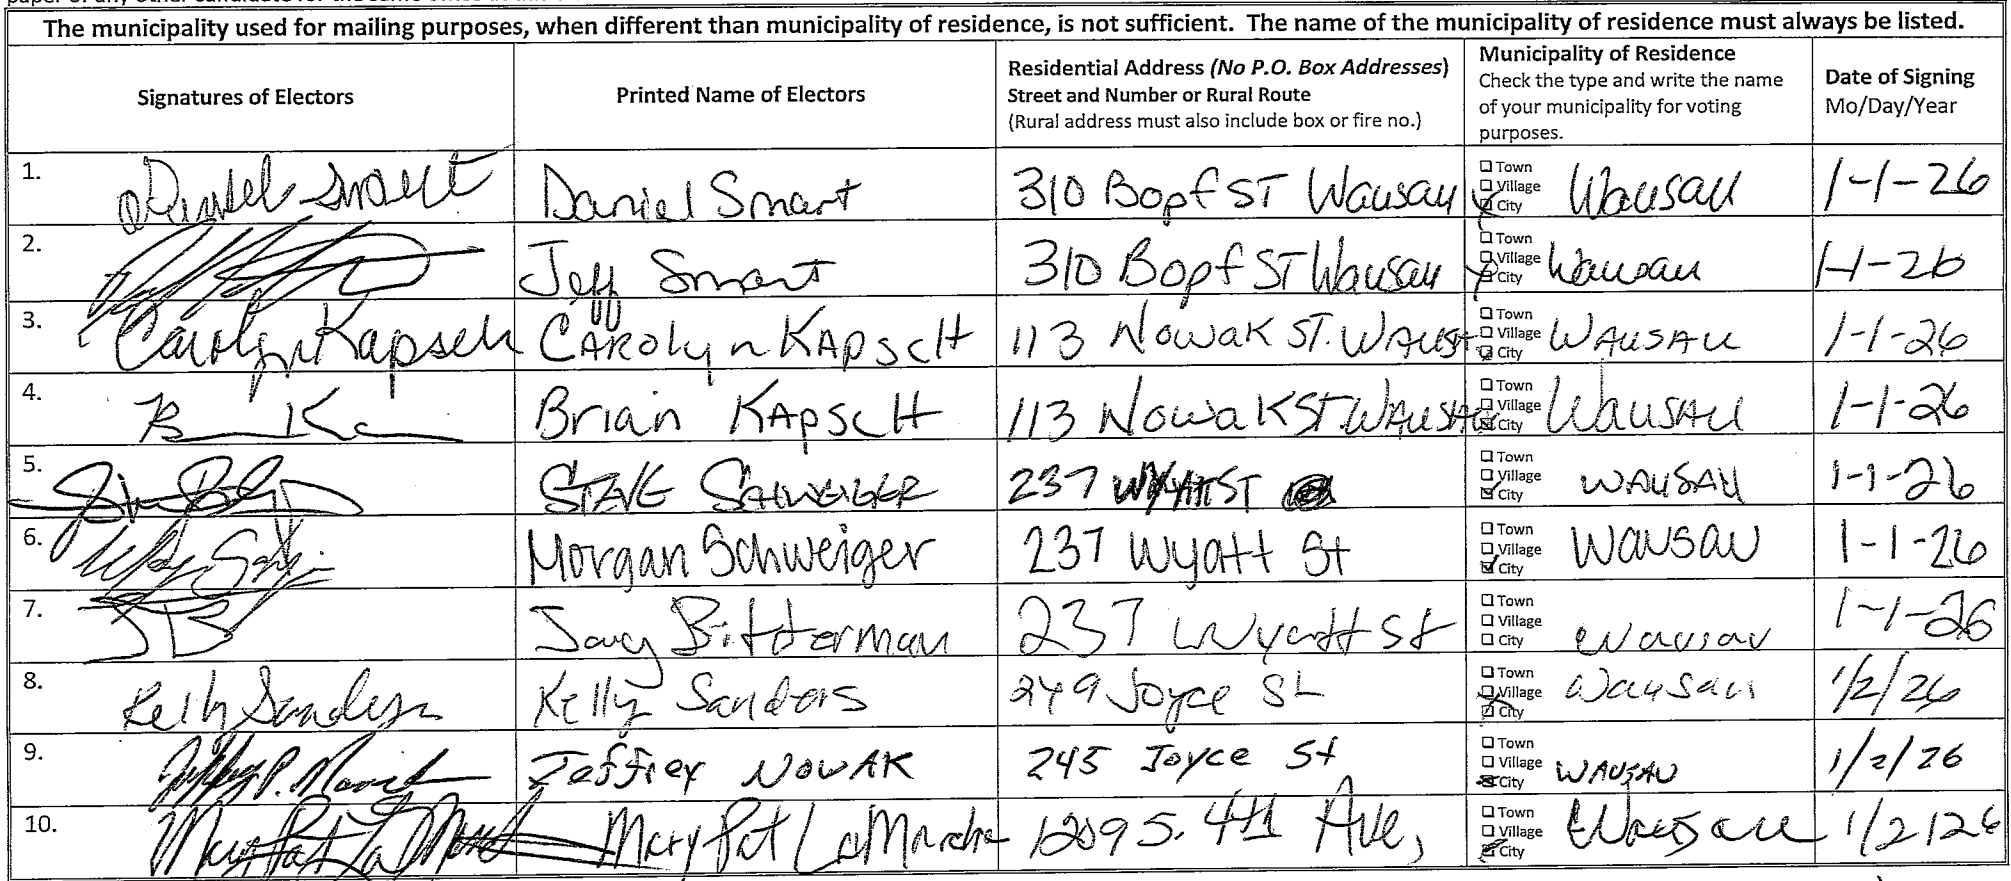 The municipality used for mailing purposes, when different than municipality of residence, is not sufficient. The name of the municipality of residence must always be listed.
Signatures of Electors
Printed Name of Electors
Residential Address (No P.O. Box Addresses)
Street and Number or Rural Route
(Rural address must also include box or fire no.)
Municipality of Residence
Check the type and write the name
of your municipality for voting
purposes.
Date of Signing
Mo/Day/Year
1. Daniel Smart Daniel Smart 310 Bopf ST Wausau Town Village City Wausau 1-1-26
2. Jeff Smart 310 Bopf ST Wausau Town Village City Wausau 1-1-26
3. Carolyn Kapsch CAROLyn KAPscH 113 Nowak ST. WAUSA Town Village City WAUSAU 1-1-26
4. Brian KAPScH 113 Nowak ST. WAUSAU Town Village City WAUSAU 1-1-26
5. STEVE SCHWEIGER 237 WYATT ST Town Village City WAUSAU 1-1-26
6. Morgan Schweiger 237 Wyatt St Town Village City Wausau 1-1-26
7. JB Bitterman 237 Wyatt St Town Village City Wausau 1-1-26
8. Kelly Sanders Kelly Sanders 249 Joyce St Town Village City Wausau 1/2/26
9. Jeffrey NOWAK 245 Joyce St Town Village City WAUSAU 1/2/26
10. Mary Pat LaMarche Mary Pat LaMarche 1209 S. 4th Ave, Town Village City Wausau 1/2/26